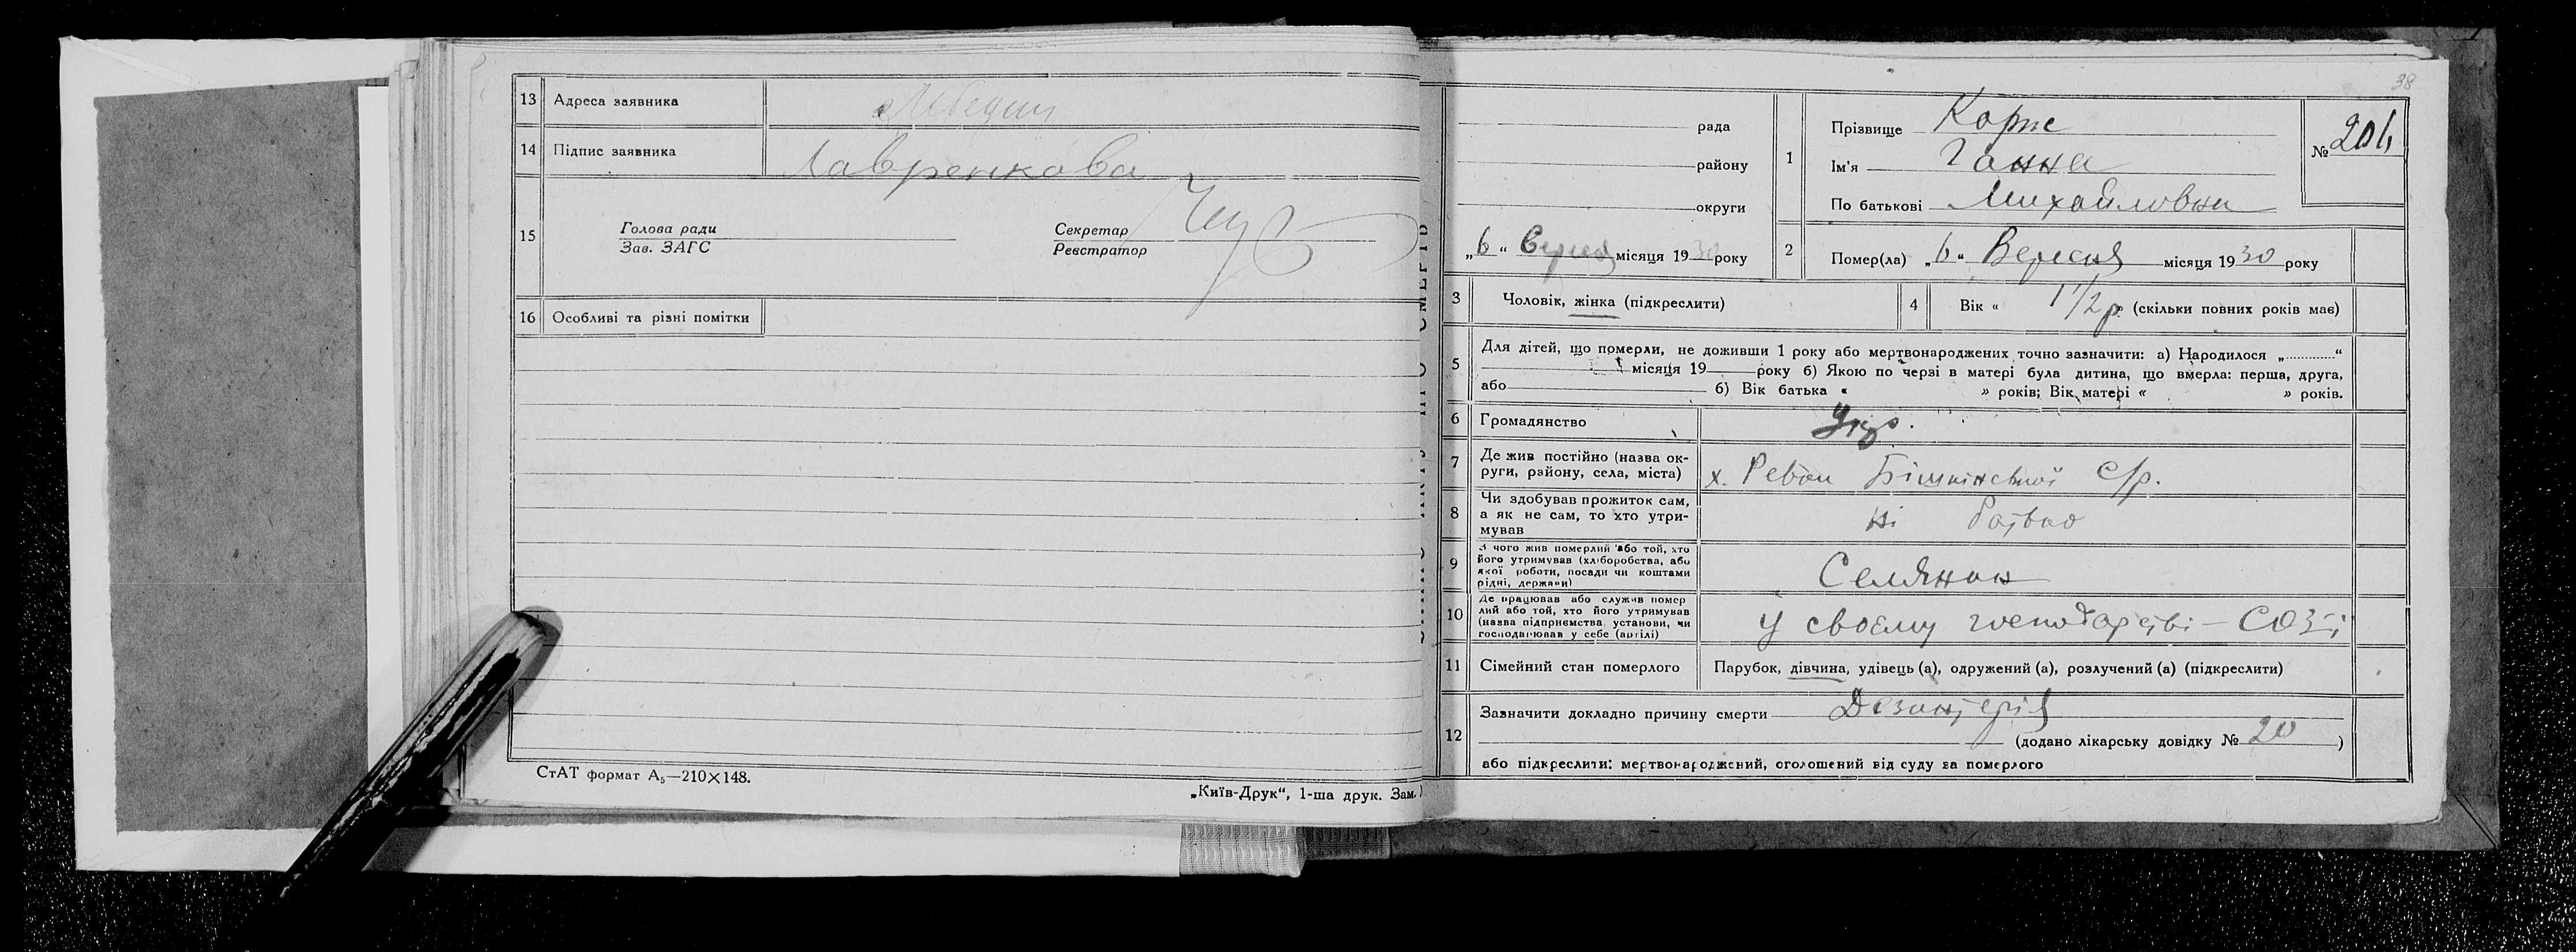 13 Адреса заявника Лебедин
14 Підпис заявника Лавренкова
15 Голова ради
Зав. ЗАГС
Секретар
Реєстратор
16 Особливі та різні помітки
СтАТ формат А₅—210×148.
„Київ-Друк“, 1-ша друк. Зам.
38
рада
району
округи
„6“ Вересня місяця 1930 року
1 Прізвище Корж
Ім'я Ганна
По батькові Михайловна
№ 206
2 Помер(ла) „6“ Вересня місяця 1930 року
3 Чоловік, жінка (підкреслити)
4 Вік « 1 1/2 р. (скільки повних років має)
5 Для дітей, що померли, не доживши 1 року або мертвонароджених точно зазначити: а) Народилося „.............“
місяця 19 року б) Якою по черзі в матері була дитина, що вмерла: перша, друга,
або б) Вік батька « » років; Вік матері « » років.
6 Громадянство Укр.
7 Де жив постійно (назва ок-
руги, району, села, міста)
х. Ревки Бишкінської с/р.
8 Чи здобував прожиток сам,
а як не сам, то хто утри-
мував
ні батько
9 З чого жив померлий або той, хто
його утримував (хліборобства, або
якої роботи, посади чи коштами
рідні, держави)
Селянин
10 Де працював або служив помер
лий або той, хто його утримував
(назва підприємства, установи, чи
господарював у себе (артілі)
у своєму господарстві — СОЗ-і
11 Сімейний стан померлого Парубок, дівчина, удівець (а), одружений (а), розлучений (а) (підкреслити)
12 Зазначити докладно причину смерти Дезинтерія
(додано лікарську довідку № 20 )
або підкреслити: мертвонароджений, оголошений від суду за померлого